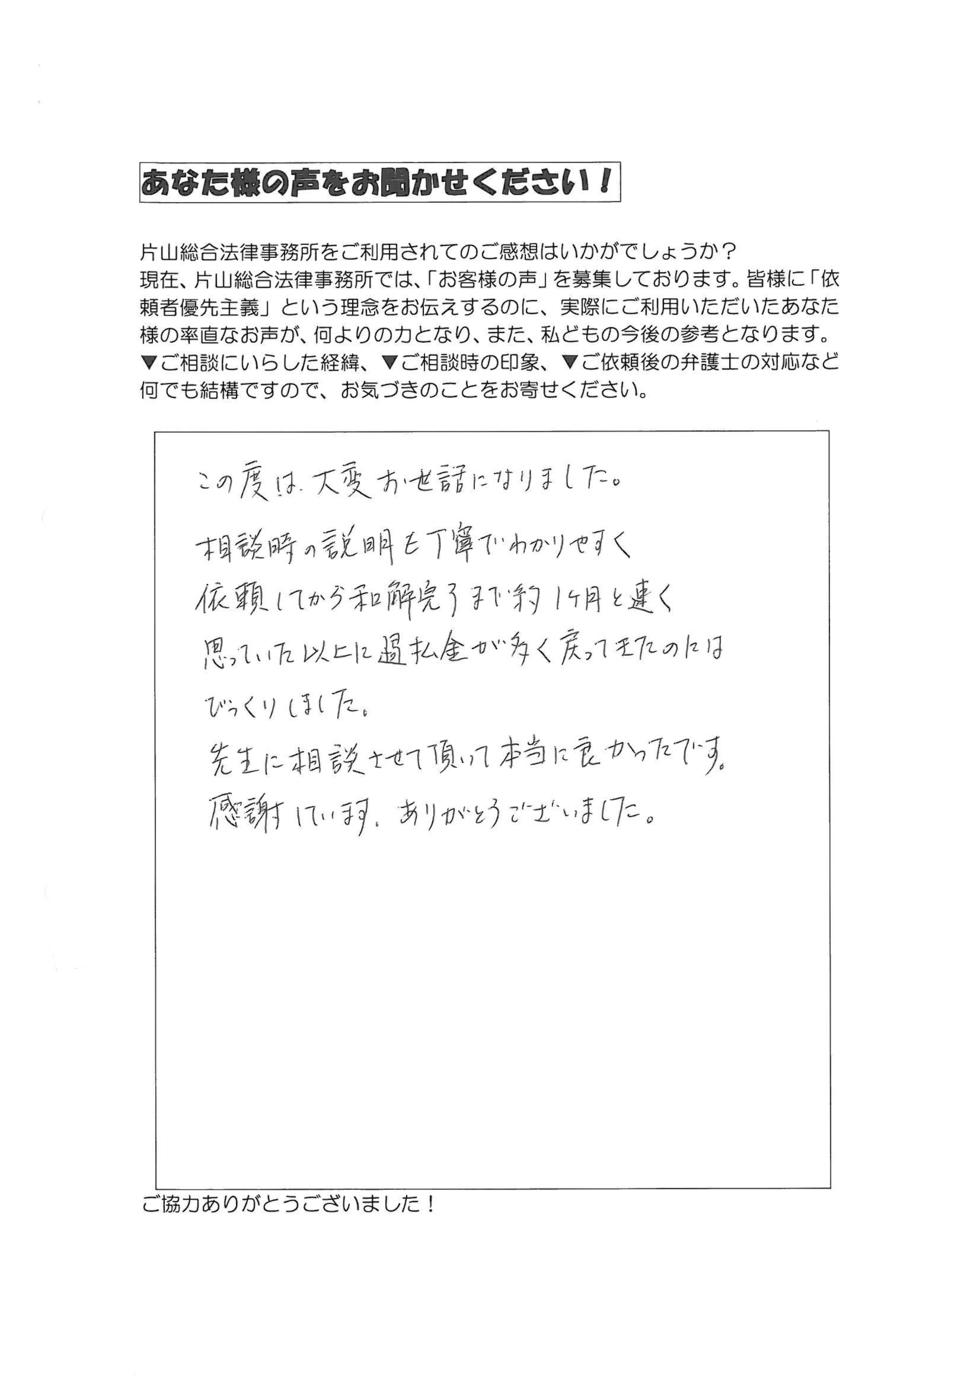 あなた様の声をお聞かせください！
片山総合法律事務所をご利用されてのご感想はいかがでしょうか？
現在、片山総合法律事務所では、「お客様の声」を募集しております。皆様に「依
頼者優先主義」という理念をお伝えするのに、実際にご利用いただいたあなた
様の率直なお声が、何よりの力となり、また、私どもの今後の参考となります。
▼ご相談にいらした経緯、▼ご相談時の印象、▼ご依頼後の弁護士の対応など
何でも結構ですので、お気づきのことをお寄せください。
この度は、大変お世話になりました。
相談時の説明も丁寧でわかりやすく
依頼してから和解完了まで約1ヶ月と速く
思っていた以上に過払金が多く戻ってきたのには
びっくりしました。
先生に相談させて頂いて本当に良かったです。
感謝しています。ありがとうございました。
ご協力ありがとうございました！